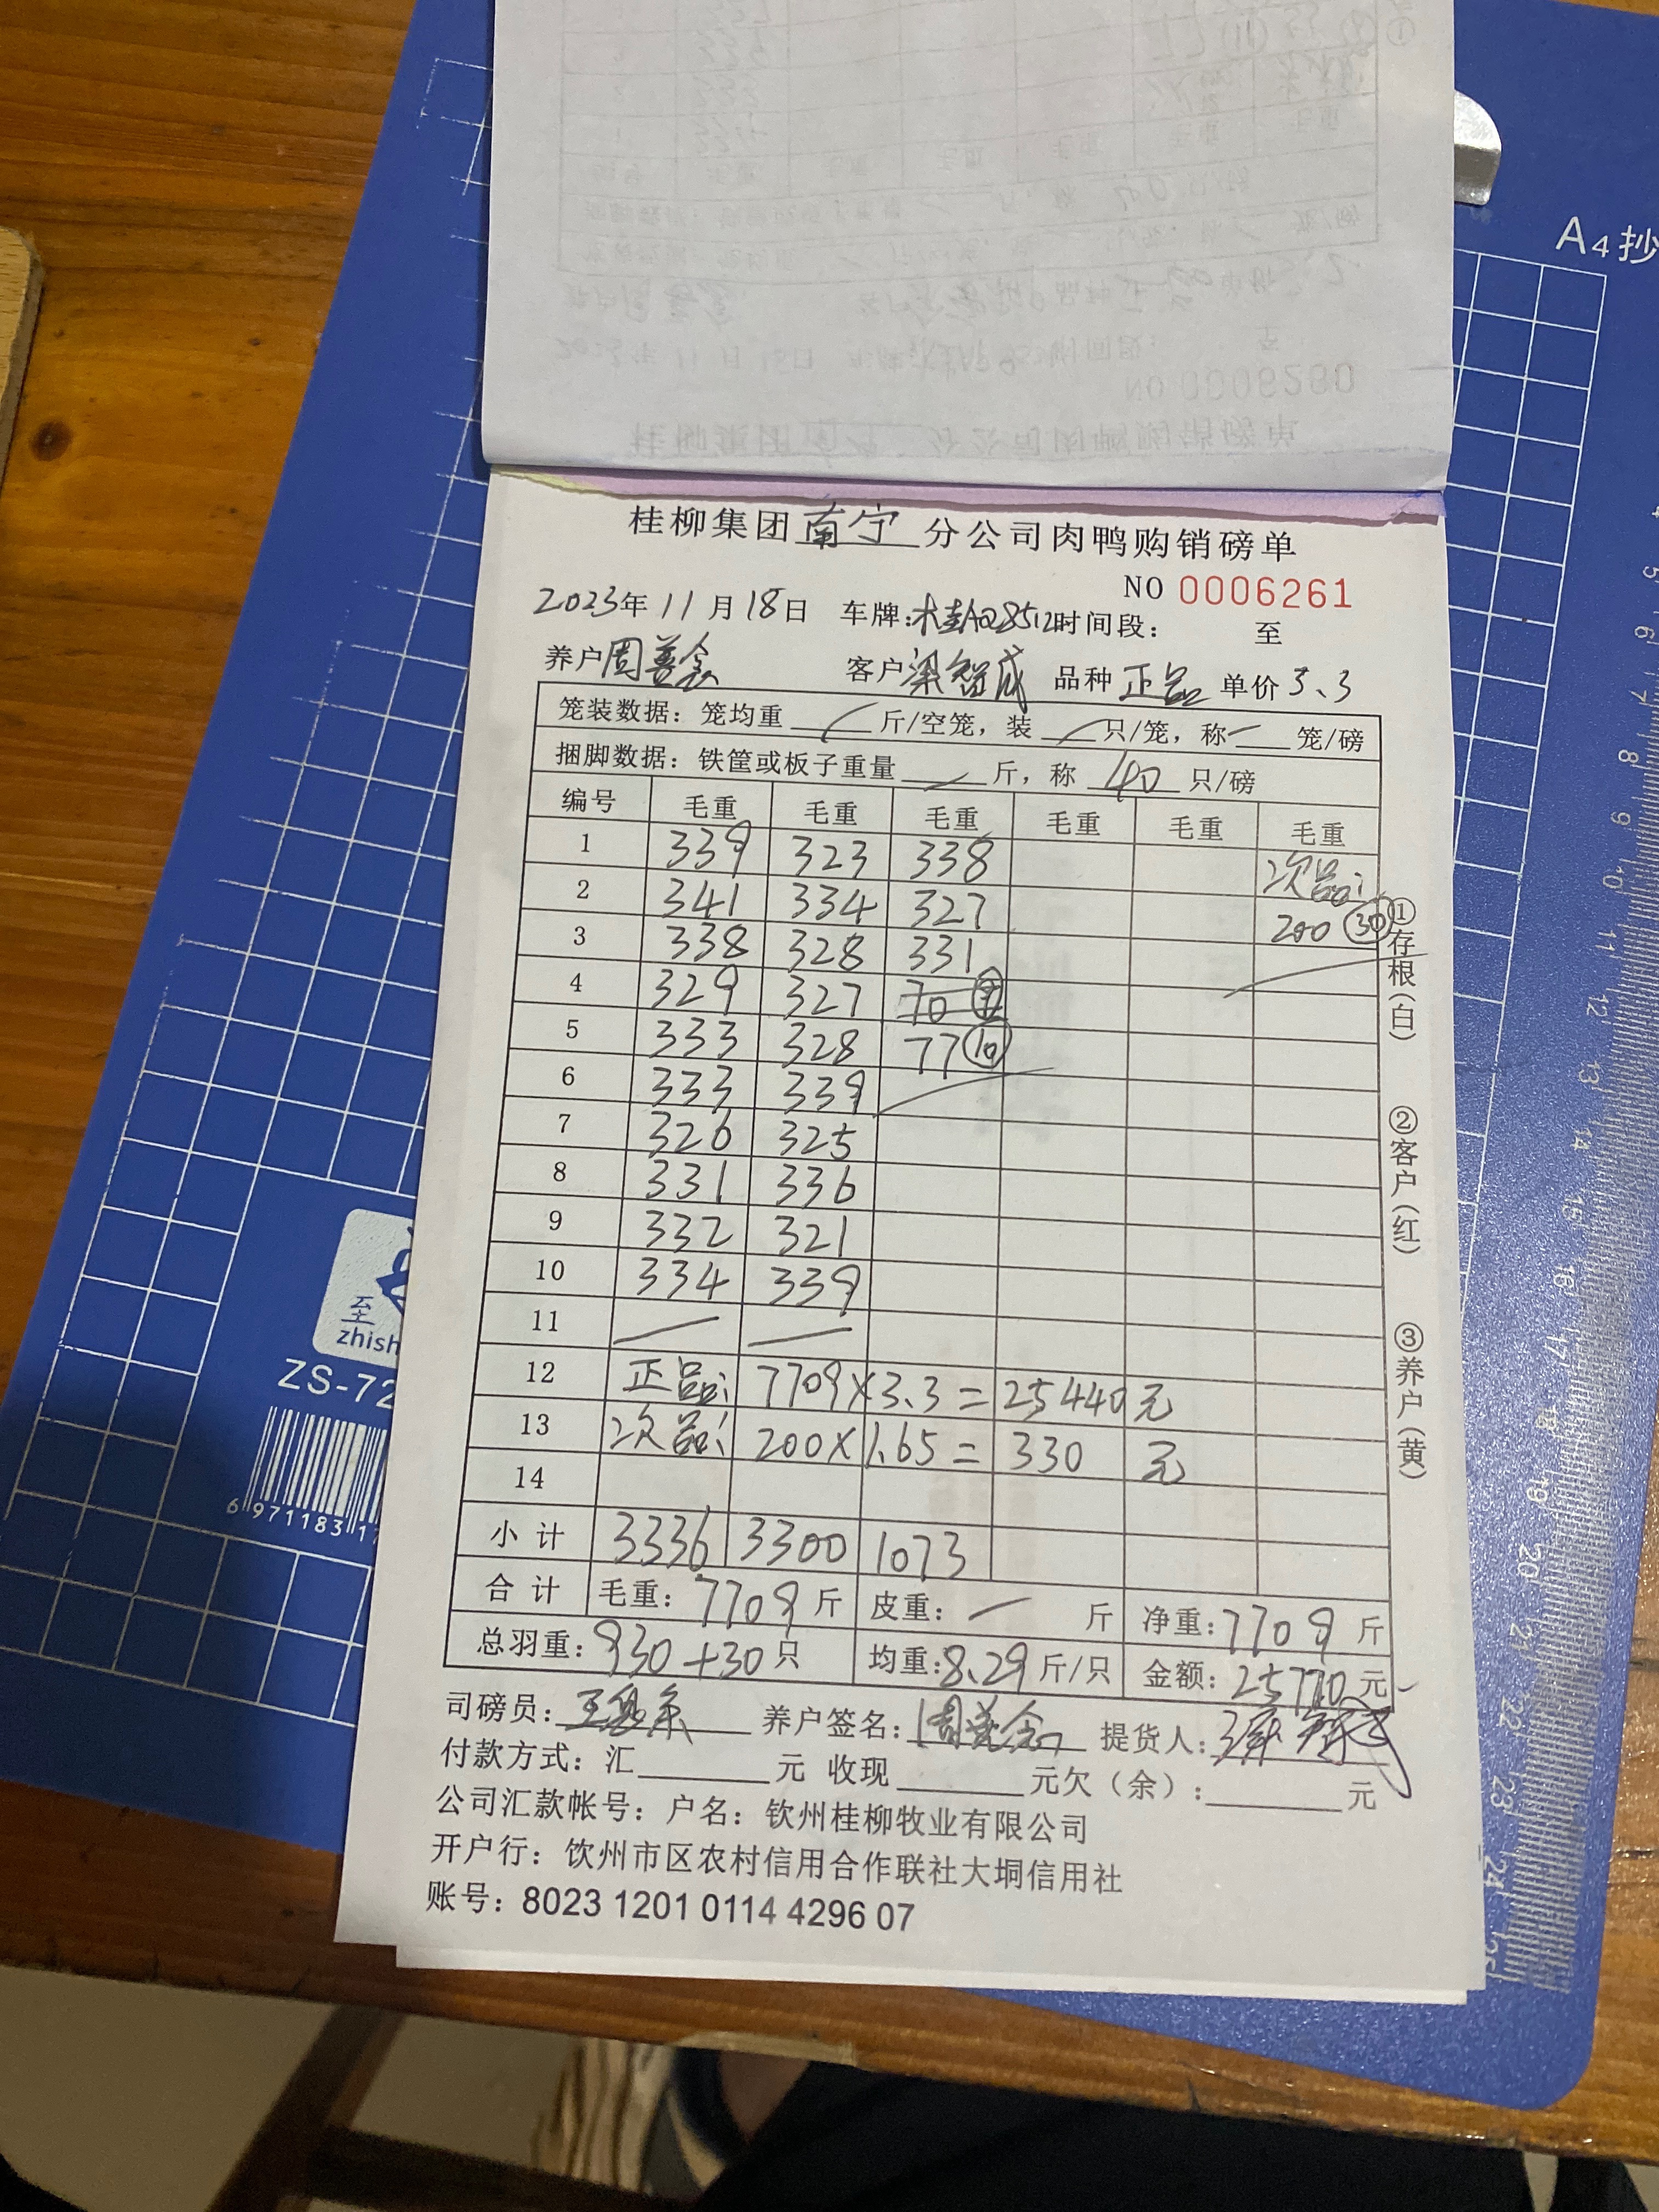 A4抄
桂柳集团南宁分公司肉鸭购销磅单
NO 0006261
2023年 11月 18日 车牌:桂A028512 时间段: 至
养户 周善 客户 梁智成 品种 正品 单价 3.3
笼装数据: 笼均重 / 斤/空笼, 装 / 只/笼, 称 / 笼/磅
捆脚数据: 铁筐或板子重量 / 斤, 称 40 只/磅
编号 毛重 毛重 毛重 毛重 毛重 毛重
1 339 323 338 次品:
2 341 334 327 200 30
3 338 328 331
4 329 327 70
5 333 328 77 10
6 333 339
7 326 325
8 331 336
9 332 321
10 334 339
11
12 正品: 7709×3.3=25440元
13 次品: 200×1.65=330 元
14
小计 3336 3300 1073
合计 毛重: 7709 斤 皮重: / 斤 净重: 7709 斤
总羽重: 930+30 只 均重: 8.29 斤/只 金额: 25770 元
司磅员: 王 养户签名: 周善 提货人:
付款方式: 汇 元 收现 元欠(余): 元
公司汇款帐号: 户名: 钦州桂柳牧业有限公司
开户行: 饮州市区农村信用合作联社大垌信用社
账号: 8023 1201 0114 4296 07
①存根(白) ②客户(红) ③养户(黄)
至
zhish
ZS-72
6 971183 17
4
5
6
7
8
9
10
11
12
13
14
15
16
17
18
19
20
21
22
23
24
25